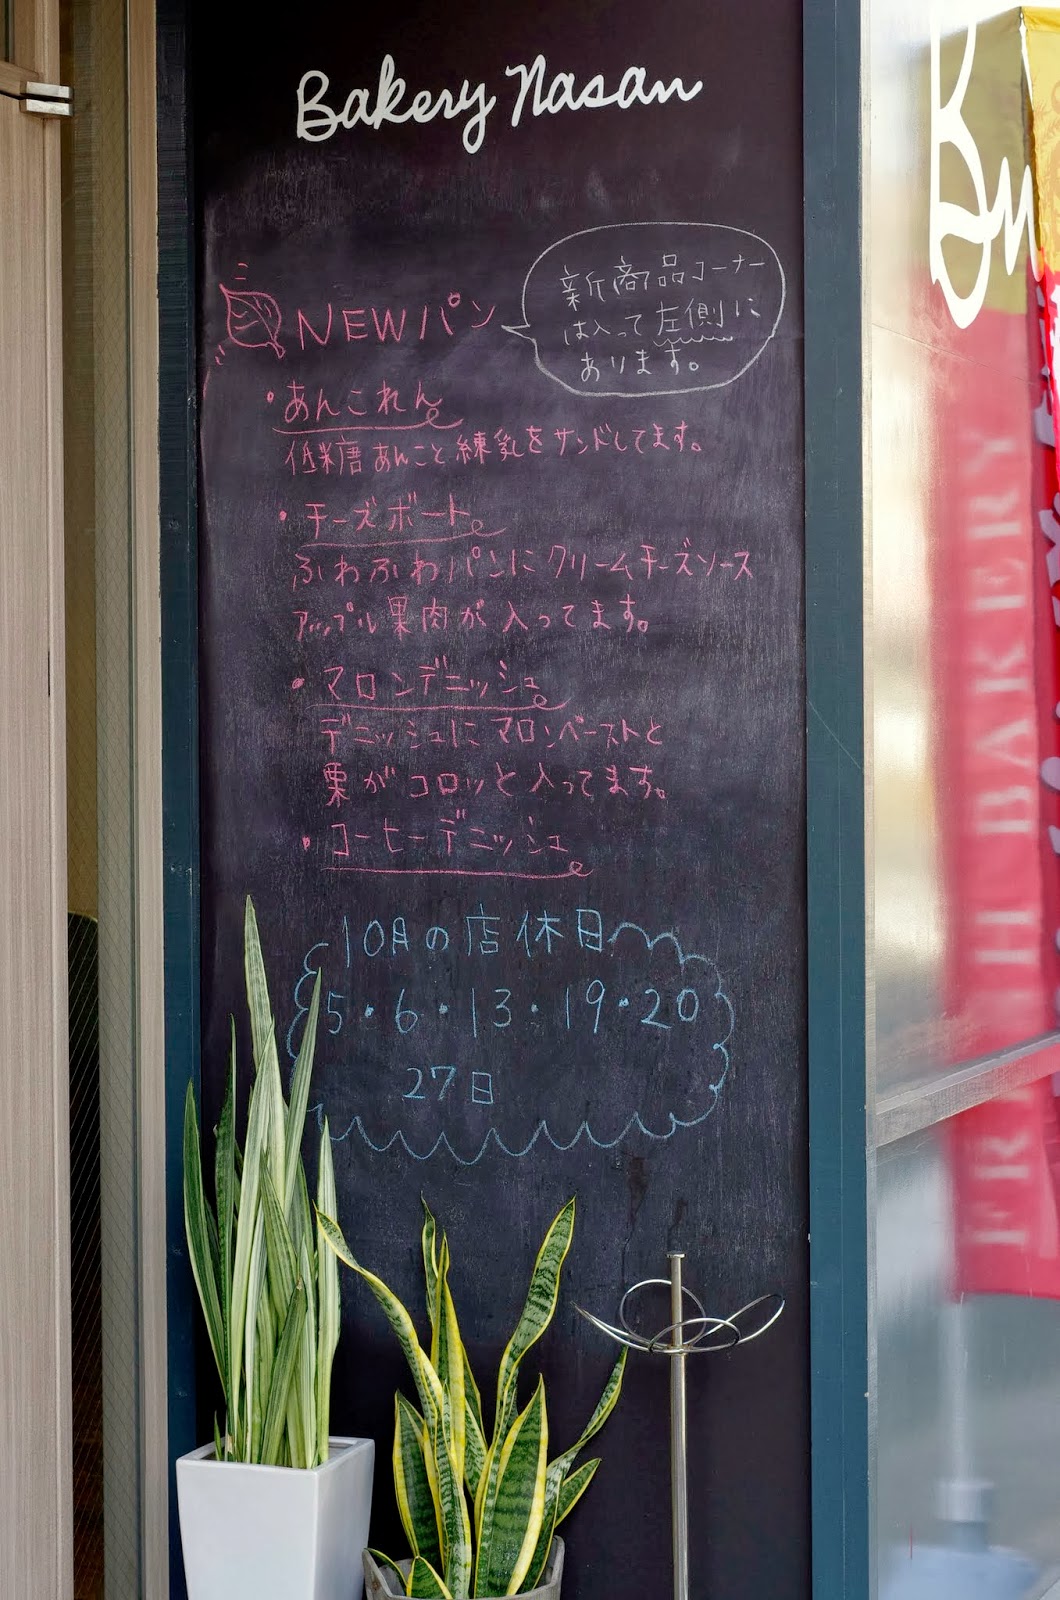 Bakery Nasan
NEWパン
新商品コーナー
は入って左側に
あります。
・あんこれん
低糖あんこと練乳をサンドしてます。
・チーズボート
ふわふわパンにクリームチーズソース
アップル果肉が入ってます。
・マロンデニッシュ
デニッシュにマロンペーストと
栗がコロッと入ってます。
・コーヒーデニッシュ
10月の店休日
5・6・13・19・20
27日
FRESH BAKERY